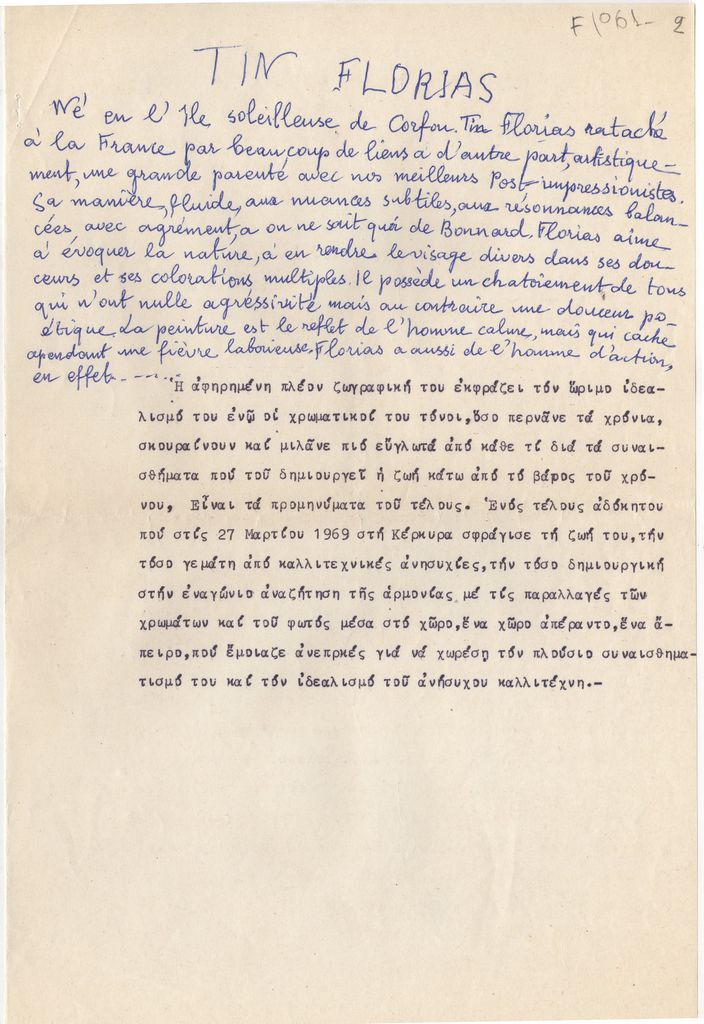 F1061- 2
TIN FLORIAS
Né en l'Ile soleilleuse de Corfou. Tin Florias rataché
à la France par beaucoup de liens a d'autre part, artistique-
ment, une grande parenté avec nos meilleurs Post-impressionistes.
Sa manière, fluide, aux nuances subtiles, aux résonnances balan-
cées avec agrément, a on ne sait quoi de Bonnard. Florias aime
à évoquer la nature, à en rendre le visage divers dans ses dou-
ceurs et ses colorations multiples. Il possède un chatoiement de tons
qui n'ont nulle agressivité mais au contraire une douceur po-
étique. La peinture est le reflet de l'homme calme, mais qui cache
cependant une fièvre laborieuse. Florias a aussi de l'homme d'action,
en effet - ----
Ἡ ἀφηρημένη πλέον ζωγραφική του ἐκφράζει τόν ὥριμο ἰδεα-
λισμό του ἐνῷ οἱ χρωματικοί του τόνοι,ὅσο περνᾶνε τά χρόνια,
σκουραίνουν καί μιλᾶνε πιό εὔγλωτά ἀπό κάθε τί διά τά συναι-
σθήματα πού τοῦ δημιουργεῖ ἡ ζωή κάτω ἀπό τό βάρος τοῦ χρό-
νου, Εἶναι τά προμηνύματα τοῦ τέλους. Ἑνός τέλους ἀδόκητου
πού στίς 27 Μαρτίου 1969 στή Κέρκυρα σφράγισε τή ζωή του,τήν
τόσο γεμάτη ἀπό καλλιτεχνικές ἀνησυχίες,τήν τόσο δημιουργική
στήν ἐναγώνιο ἀναζήτηση τῆς ἁρμονίας μέ τίς παραλλαγές τῶν
χρωμάτων καί τοῦ φωτός μέσα στό χῶρο,ἕνα χῶρο ἀπέραντο,ἕνα ἄ-
πειρο,πού ἔμοιαζε ἀνεπρκές γιά νά χωρέση τόν πλούσιο συναισθημα-
τισμό του καί τόν ἰδεαλισμό τοῦ ἀνήσυχου καλλιτέχνη.-